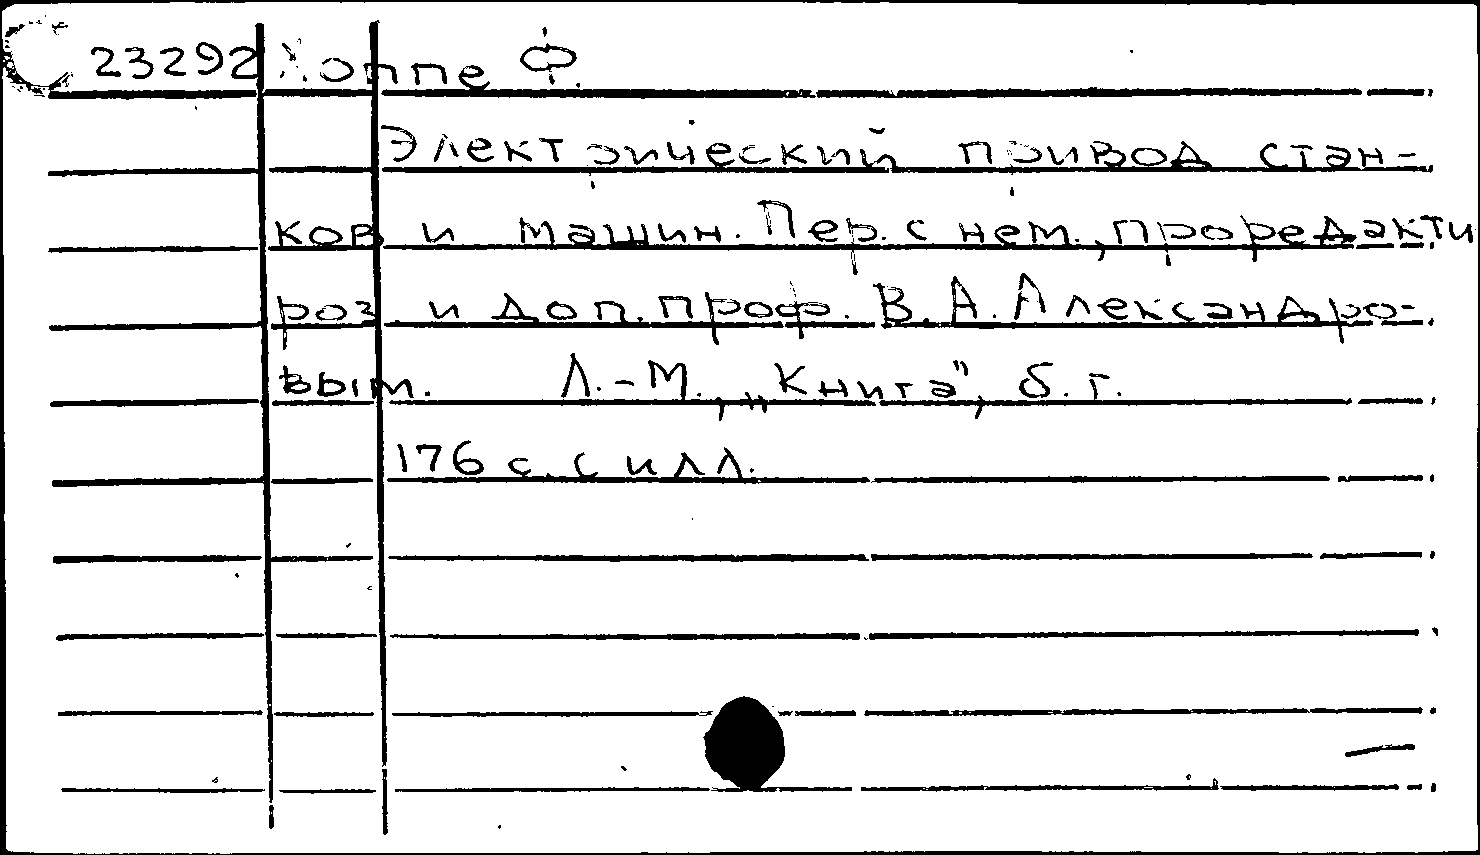 23292 Хоппе Ф.
Электрический привод стан-
ков и машин. Пер. с нем., проредакти
роз. и доп. проф. В. А. Александро-
вым. Л.-М., „Книга", б. г.
176 с. с илл.